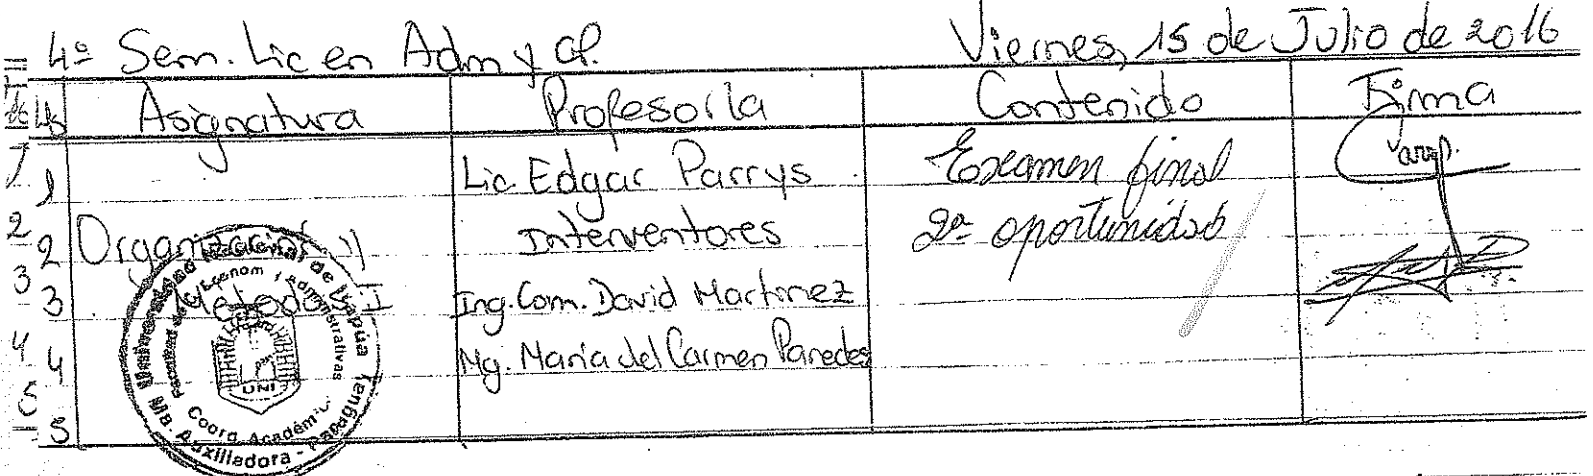 4º Sem. Lic en Adm y
Viernes, 15 de Julio de 2016
Hs Asignatura Profesor/la Contenido Firma
1 1 Lic. Edgar Parrys Examen final
2 2 Organización y Interventores 2ª oportunidad
3 3 Metodos I Ing. Com. David Martinez
4 4 Mg. Maria del Carmen Paredes
5 5
Universidad Nacional de Itapúa
Facultad de Cs. Econom. y Administrativas
UNI
Coord. Académica
Ma. Auxiliadora - Paraguay